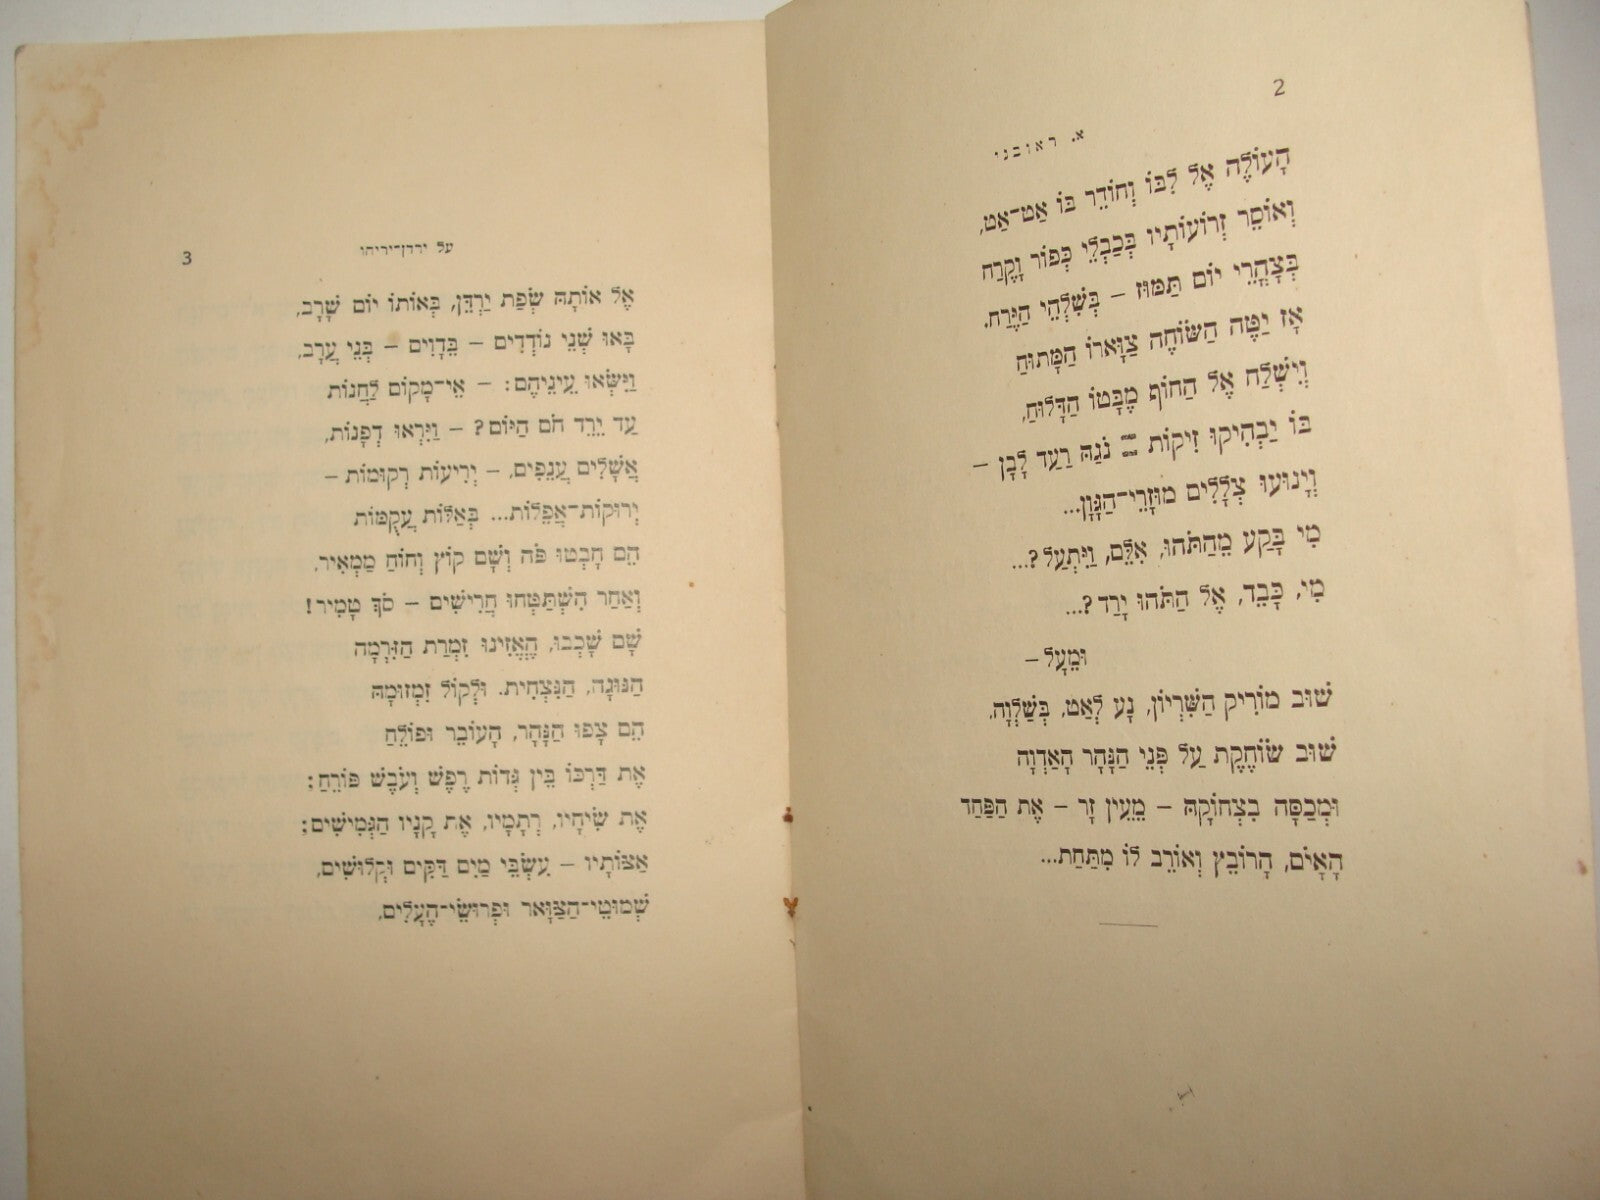 2
א. ראובני
הָעוֹלֶה אֶל לִבּוֹ וְחוֹדֵר בּוֹ אַט־אַט,
וְאוֹסֵר זְרוֹעוֹתָיו בְּכַבְלֵי כְּפוֹר וָקֶרַח
בְּצָהֳרֵי יוֹם תַּמּוּז – בְּשִׁלְהֵי הַיֶּרַח.
אָז יַטֶּה הַשּׂוֹחֶה צַוָּארוֹ הַמָּתוּחַ
וְיִשְׁלַח אֶל הַחוֹף מַבָּטוֹ הַדָּלוּחַ,
בּוֹ יַבְהִיקוּ זִיקוֹת = נֹגַהּ רַעַד לָבָן –
וְיָנוּעוּ צְלָלִים מוּזָרֵי־הַגָּוָן...
מִי בָּקַע מֵהַתֹּהוּ, אִלֵּם, וַיִּתְעַל?...
מִי, כָּבֵד, אֶל הַתֹּהוּ יָרַד?...
וּמֵעָל –
שׁוּב מוֹרִיק הַשִּׁרְיוֹן, נָע לְאַט, בְּשַׁלְוָה,
שׁוּב שׂוֹחֶקֶת עַל פְּנֵי הַנָּהָר הָאַדְוָה
וּמְכַסָּה בִצְחוֹקָהּ – מֵעֵין זָר – אֶת הַפַּחַד
הָאָיֹם, הָרוֹבֵץ וְאוֹרֵב לוֹ מִתַּחַת...
על ירדן־יריחו
3
אֶל אוֹתָהּ שְׂפַת יַרְדֵּן, בְּאוֹתוֹ יוֹם שָׁרָב,
בָּאוּ שְׁנֵי נוֹדְדִים – בֵּדָוִים – בְּנֵי עֲרָב,
וַיִּשְׂאוּ עֵינֵיהֶם: – אֵי־מָקוֹם לַחֲנוֹת
עַד יֵרֵד חֹם הַיּוֹם? – וַיִּרְאוּ דְפָנוֹת,
אֲשָׁלִים עֲנֵפִים, – יְרִיעוֹת רְקוּמוֹת –
יְרוּקוֹת־אֲפֵלוֹת... בְּאַלּוֹת עֲקֻמּוֹת
הֵם חָבְטוּ פֹּה וְשָׁם קוֹץ וְחוֹחַ מַמְאִיר,
וְאַחַר הִשְׁתַּטְּחוּ חֲרִישִׁים – סֹךְ טָמִיר!
שָׁם שָׁכְבוּ, הֶאֱזִינוּ זִמְרַת הַזִּרְמָה
הַנּוּגָה, הַנִּצְחִית. וּלְקוֹל זִמְזוּמָהּ
הֵם צָפוּ הַנָּהָר, הָעוֹבֵר וּפוֹלֵחַ
אֶת דַּרְכּוֹ בֵּין גְּדוֹת רֶפֶשׁ וְעֹבֶשׁ פּוֹרֵחַ;
אֶת שִׂיחָיו, רְתָמָיו, אֶת קָנָיו הַגְּמִישִׁים;
אַצּוֹתָיו – עִשְׂבֵי מַיִם דַּקִּים וּקְלוּשִׁים,
שְׁמוּטֵי־הַצַּוָּאר וּפְרוּשֵׂי־הֶעָלִים,